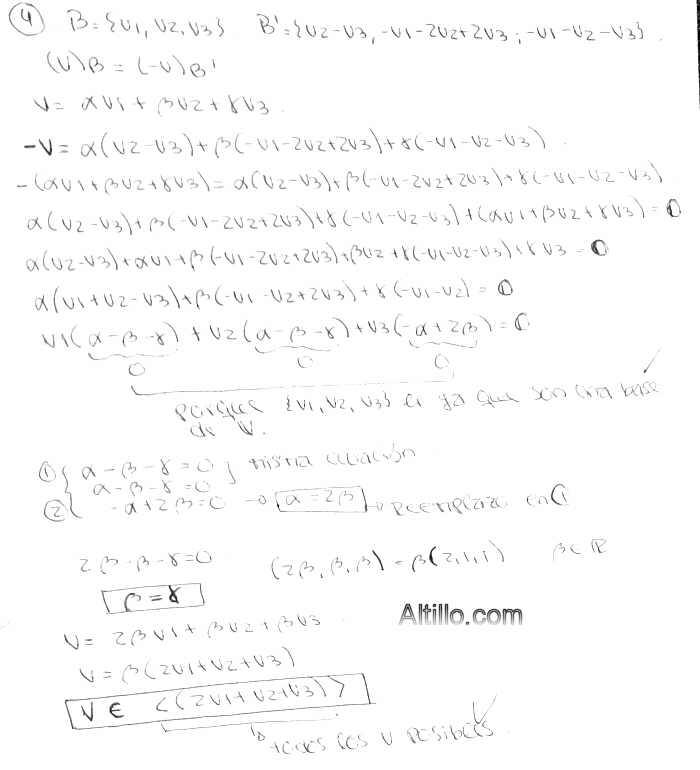 4 B = {v1, v2, v3} B' = {v2-v3, -v1-2v2+2v3; -v1-v2-v3}.
(v)B = (-v)B'
v = αv1 + βv2 + γv3.
-v = α(v2-v3) + β(-v1-2v2+2v3) + γ(-v1-v2-v3).
-(αv1+βv2+γv3) = α(v2-v3) + β(-v1-2v2+2v3) + γ(-v1-v2-v3)
α(v2-v3) + β(-v1-2v2+2v3) + γ(-v1-v2-v3) + (αv1+βv2+γv3) = 0
α(v2-v3) + αv1 + β(-v1-2v2+2v3) + βv2 + γ(-v1-v2-v3) + γv3 = 0
α(v1+v2-v3) + β(-v1-v2+2v3) + γ(-v1-v2) = 0
v1(α-β-γ) + v2(α-β-γ) + v3(-α+2β) = 0
0 0 0
porque {v1, v2, v3} ya que son una base
de V.
1 { α-β-γ=0 } misma ecuación
α-β-γ=0
2 -α+2β=0 → α=2β → Reemplazo en 1
2β-β-γ=0 (2β, β, β) = β(2,1,1) β∈R
β=γ
Altillo.com
v = 2βv1 + βv2 + βv3
v = β(2v1+v2+v3)
v ∈ <(2v1+v2+v3)>
todos los v posibles.